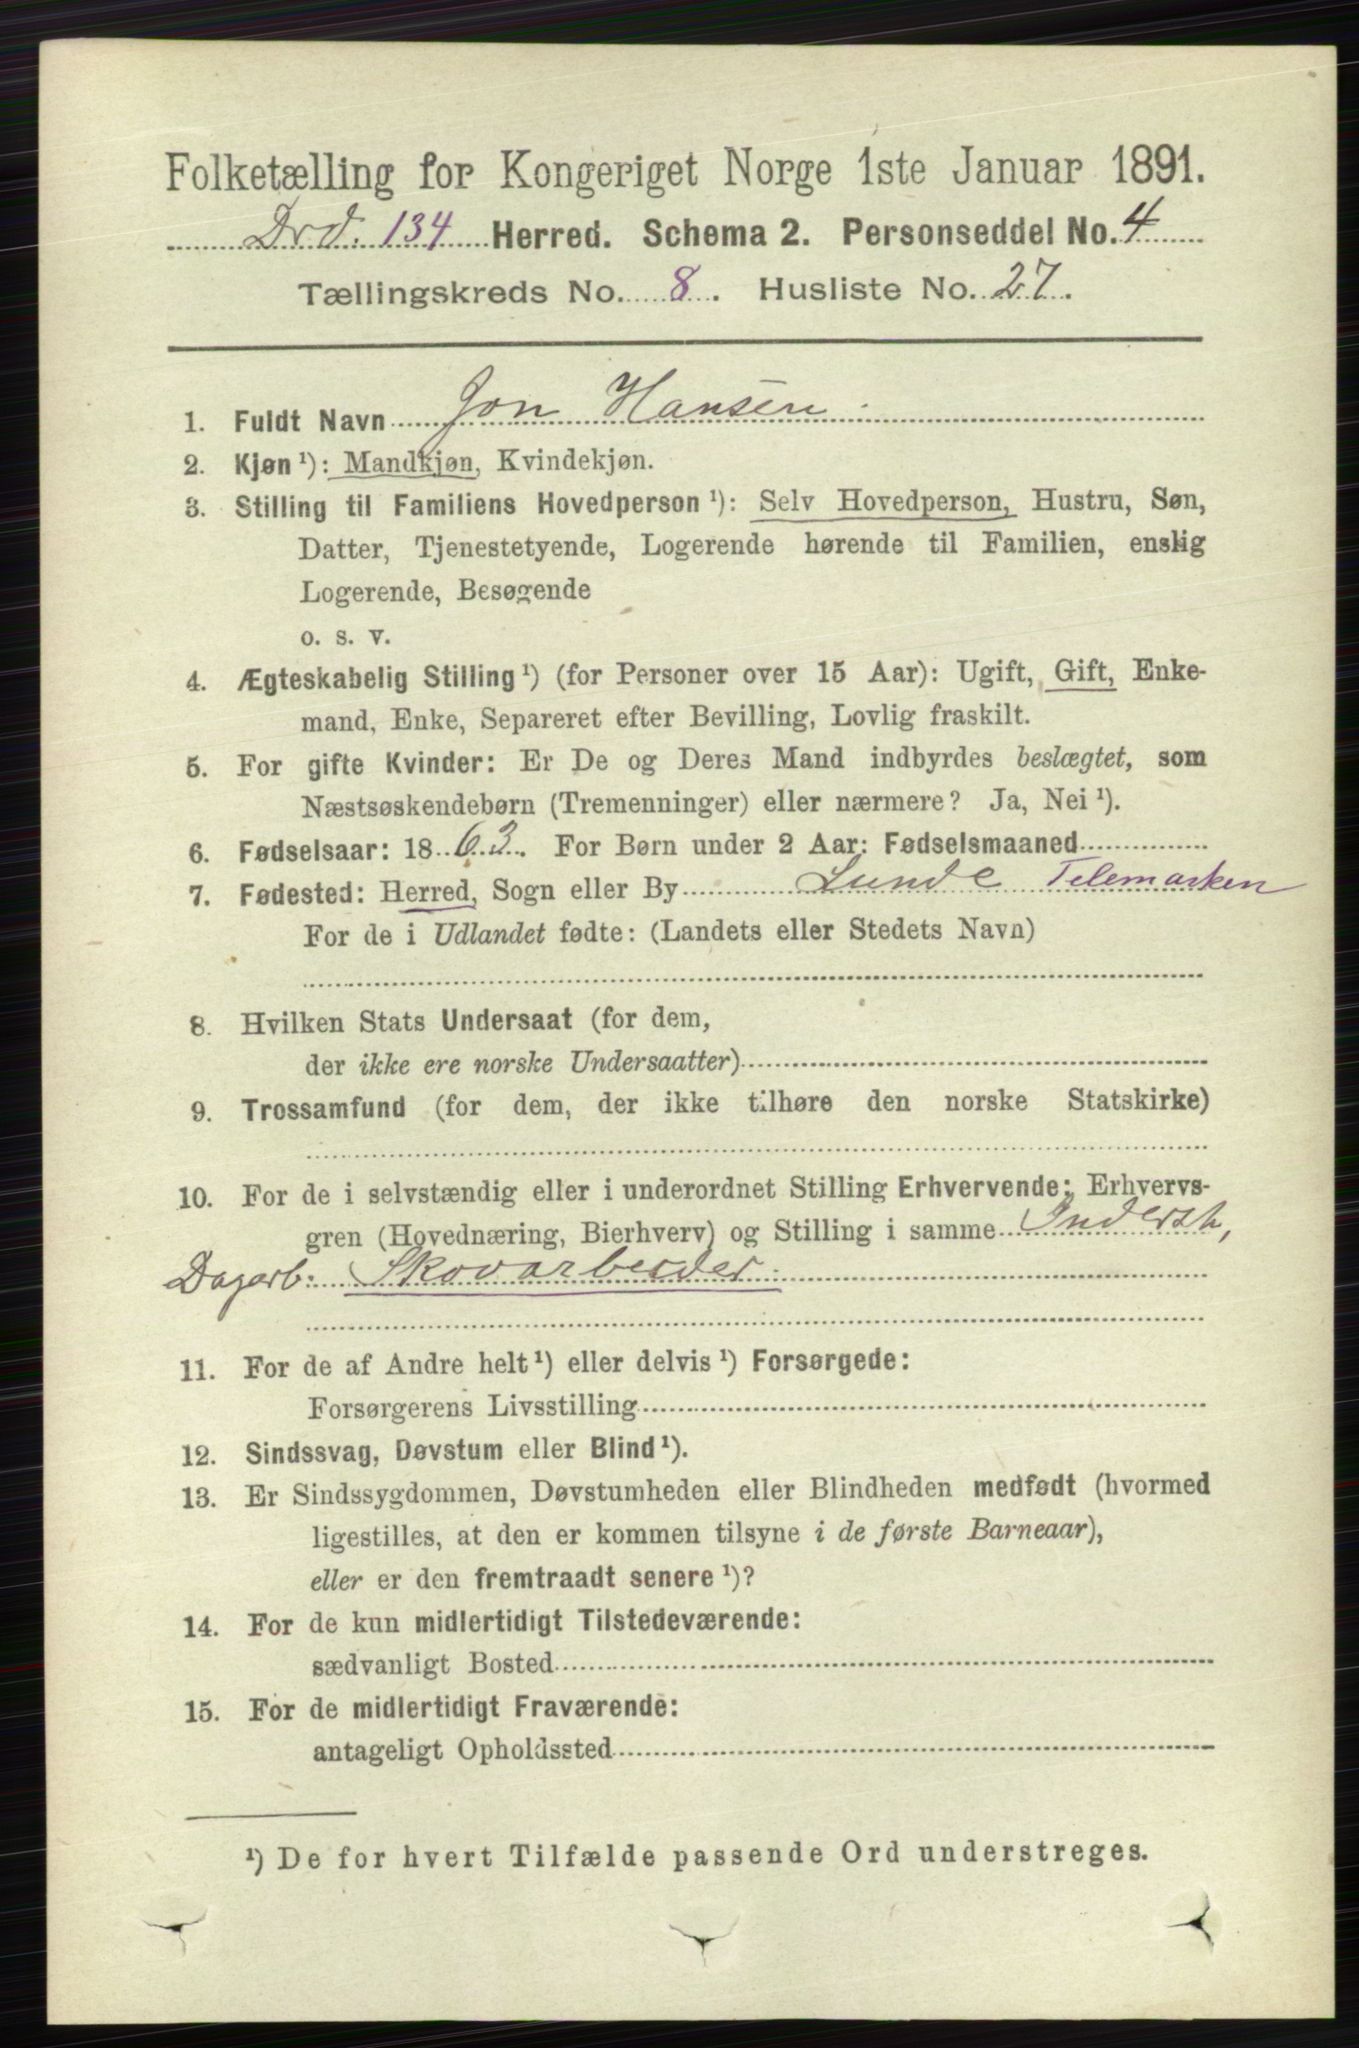 Folketælling for Kongeriget Norge 1ste Januar 1891.
Drd. 134 Herred. Schema 2. Personseddel No. 4
Tællingskreds No. 8. Husliste No. 27.
1. Fuldt Navn Jon Hansen
2. Kjøn ¹): Mandkjøn, Kvindekjøn.
3. Stilling til Familiens Hovedperson ¹): Selv Hovedperson, Hustru, Søn,
Datter, Tjenestetyende, Logerende hørende til Familien, enslig
Logerende, Besøgende
o. s. v.
4. Ægteskabelig Stilling ¹) (for Personer over 15 Aar): Ugift, Gift, Enke-
mand, Enke, Separeret efter Bevilling, Lovlig fraskilt.
5. For gifte Kvinder: Er De og Deres Mand indbyrdes beslægtet, som
Næstsøskendebørn (Tremenninger) eller nærmere? Ja, Nei ¹).
6. Fødselsaar: 1863. For Børn under 2 Aar: Fødselsmaaned
7. Fødested: Herred, Sogn eller By Lunde Telemarken
For de i Udlandet fødte: (Landets eller Stedets Navn)
8. Hvilken Stats Undersaat (for dem,
der ikke ere norske Undersaatter)
9. Trossamfund (for dem, der ikke tilhøre den norske Statskirke)
10. For de i selvstændig eller i underordnet Stilling Erhvervende: Erhvervs-
gren (Hovednæring, Bierhverv) og Stilling i samme Inderst,
Dagarb: Skovarbeider
11. For de af Andre helt ¹) eller delvis ¹) Forsørgede:
Forsørgerens Livsstilling
12. Sindssvag, Døvstum eller Blind ¹).
13. Er Sindssygdommen, Døvstumheden eller Blindheden medfødt (hvormed
ligestilles, at den er kommen tilsyne i de første Barneaar),
eller er den fremtraadt senere ¹)?
14. For de kun midlertidigt Tilstedeværende:
sædvanligt Bosted
15. For de midlertidigt Fraværende:
antageligt Opholdssted
¹) De for hvert Tilfælde passende Ord understreges.